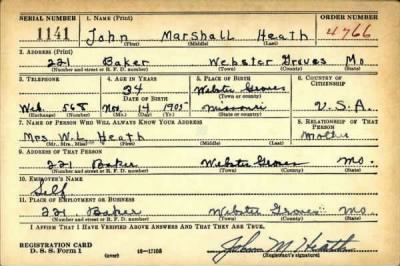 SERIAL NUMBER 1. NAME (Print) ORDER NUMBER
1141 John Marshall Heath 4766
(First) (Middle) (Last)
2. ADDRESS (Print)
221 Baker Webster Groves Mo.
(Number and street or R. F. D. number) (Town) (County) (State)
3. TELEPHONE 4. AGE IN YEARS 5. PLACE OF BIRTH 6. COUNTRY OF CITIZENSHIP
34 Webster Groves
DATE OF BIRTH (Town or county)
Web. 568 Nov. 14 1905 Missouri U.S.A.
(Exchange) (Number) (Mo.) (Day) (Yr.) (State or country)
7. NAME OF PERSON WHO WILL ALWAYS KNOW YOUR ADDRESS 8. RELATIONSHIP OF THAT PERSON
Mrs. W. L. Heath Mother
(Mr., Mrs., Miss) (First) (Middle) (Last)
9. ADDRESS OF THAT PERSON
221 Baker Webster Groves Mo.
(Number and street or R. F. D. number) (Town) (County) (State)
10. EMPLOYER'S NAME
Self
11. PLACE OF EMPLOYMENT OR BUSINESS
221 Baker Webster Groves Mo.
(Number and street or R. F. D. number) (Town) (County) (State)
I AFFIRM THAT I HAVE VERIFIED ABOVE ANSWERS AND THAT THEY ARE TRUE.
REGISTRATION CARD
D. S. S. Form 1 (over) 16-17105 John M. Heath
(Registrant's signature)